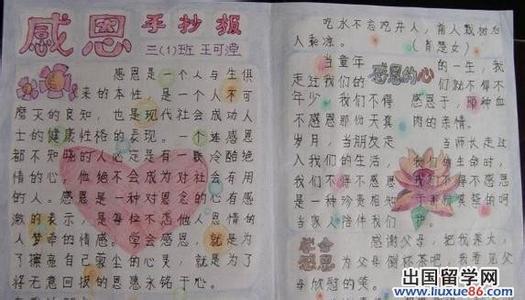 感恩 手抄报
三(1)班 王可滢
感恩是一个人与生俱
来的本性,是一个人不可
磨灭的良知,也是现代社会成功人
士的健康性格的表现。一个连感恩
都不知晓的人必定是有一颗冷酷绝
情的心,他绝不会成为对社会有用
的人。感恩是一种对恩惠心存感
激的表示,是每位不忘他人恩情的
人梦牵的情感。学会感恩,就是为
了擦亮自己蒙尘的心灵,就是为了
将无意回报的恩惠永铭于心。
吃水不忘吃井人,前人栽树后
人乘凉。
感恩的心
当童年的一生,我
走过我们的们就不得不
年少我们不得感恩于,那种血
不感恩那份天真肉的亲情。
岁月,当朋友走 当师长走过
入我们的生活,我们的生命时,
我们不得不感恩 我们不得不感恩
是一种珍贵相
学会感恩
感谢父母,把我养大,
为父母倒杯茶吧,我看见了
母欣慰的笑。
出国留学网
www.liuxue86.com